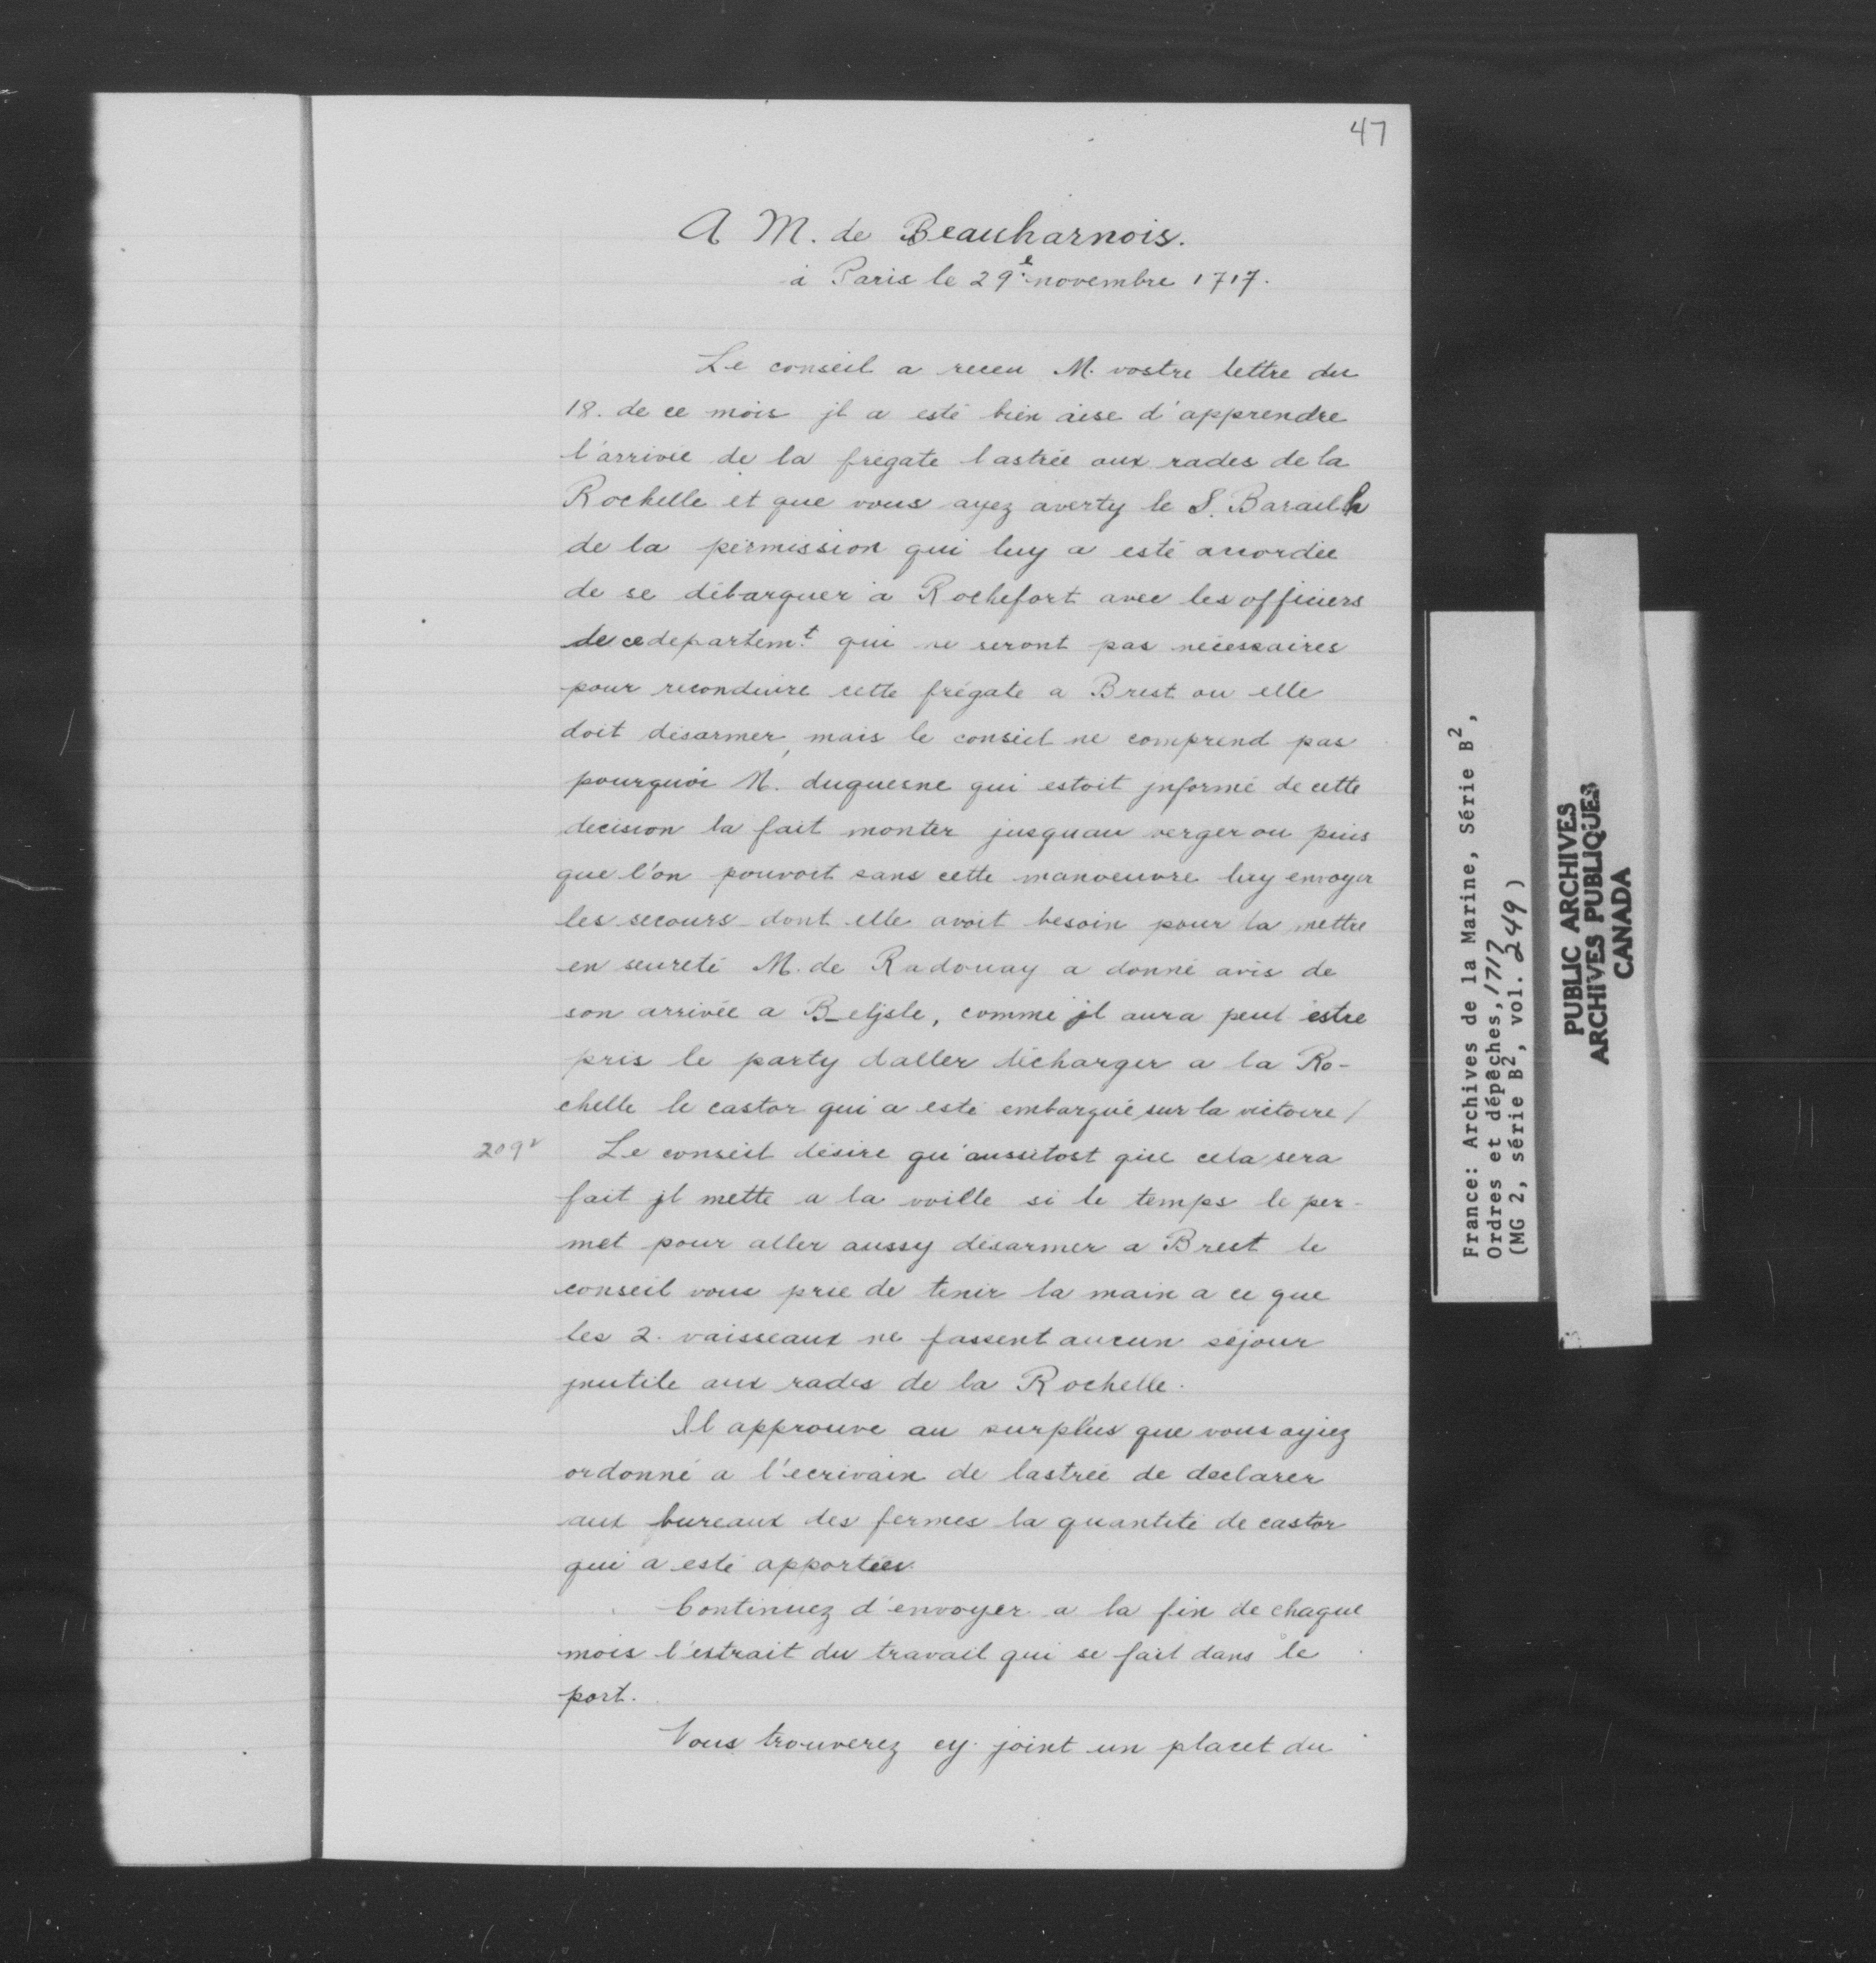 47
A M. de Beauharnois.
à Paris le 29.e novembre 1717.
Le conseil a receu M. vostre lettre du
18. de ce mois jl a esté bien aise d'apprendre
l'arrivée de la frégate lastrée aux rades de la
Rochelle et que vous ayez averty le S. Barailh
de la permission qui luy a esté accordée
de se débarquer a Rochefort avec les officiers
de ce departem.t qui ne seront pas nécessaires
pour reconduire cette frégate a Brest ou elle
doit désarmer, mais le conseil ne comprend pas
pourquoi M. duquesne qui estoit jnformé de cette
decision la fait monter jusquau verger ou puis
que l'on pouvoit sans cette manoeuvre luy envoyer
les secours dont elle avoit besoin pour la mettre
en seureté M. de Radouay a donné avis de
son arrivée a Beljsle, comme jl aura peut estre
pris le party daller décharger a la Ro-
chelle le castor qui a esté embarqué sur la victoire /
209v Le conseil désire qu'aussitost que cela sera
fait jl mette a la voille si le temps le per-
met pour aller aussy désarmer a Brest le
conseil vous prie de tenir la main a ce que
les 2. vaisseaux ne fassent aucun séjour
jnutile aux rades de la Rochelle.
Il approuve au surplus que vous ayiez
ordonné a l'ecrivain de lastrée de declarer
aux bureaux des fermes la quantité de castor
qui a esté apportées.
Continuez d'envoyer a la fin de chaque
mois l'estrait du travail qui se fait dans le
port.
Vous trouverez cy joint un placet du
France: Archives de la Marine, Série B2,
Ordres et dépêches, 1717
(MG 2, série B2, vol. 249)
PUBLIC ARCHIVES
ARCHIVES PUBLIQUES
CANADA